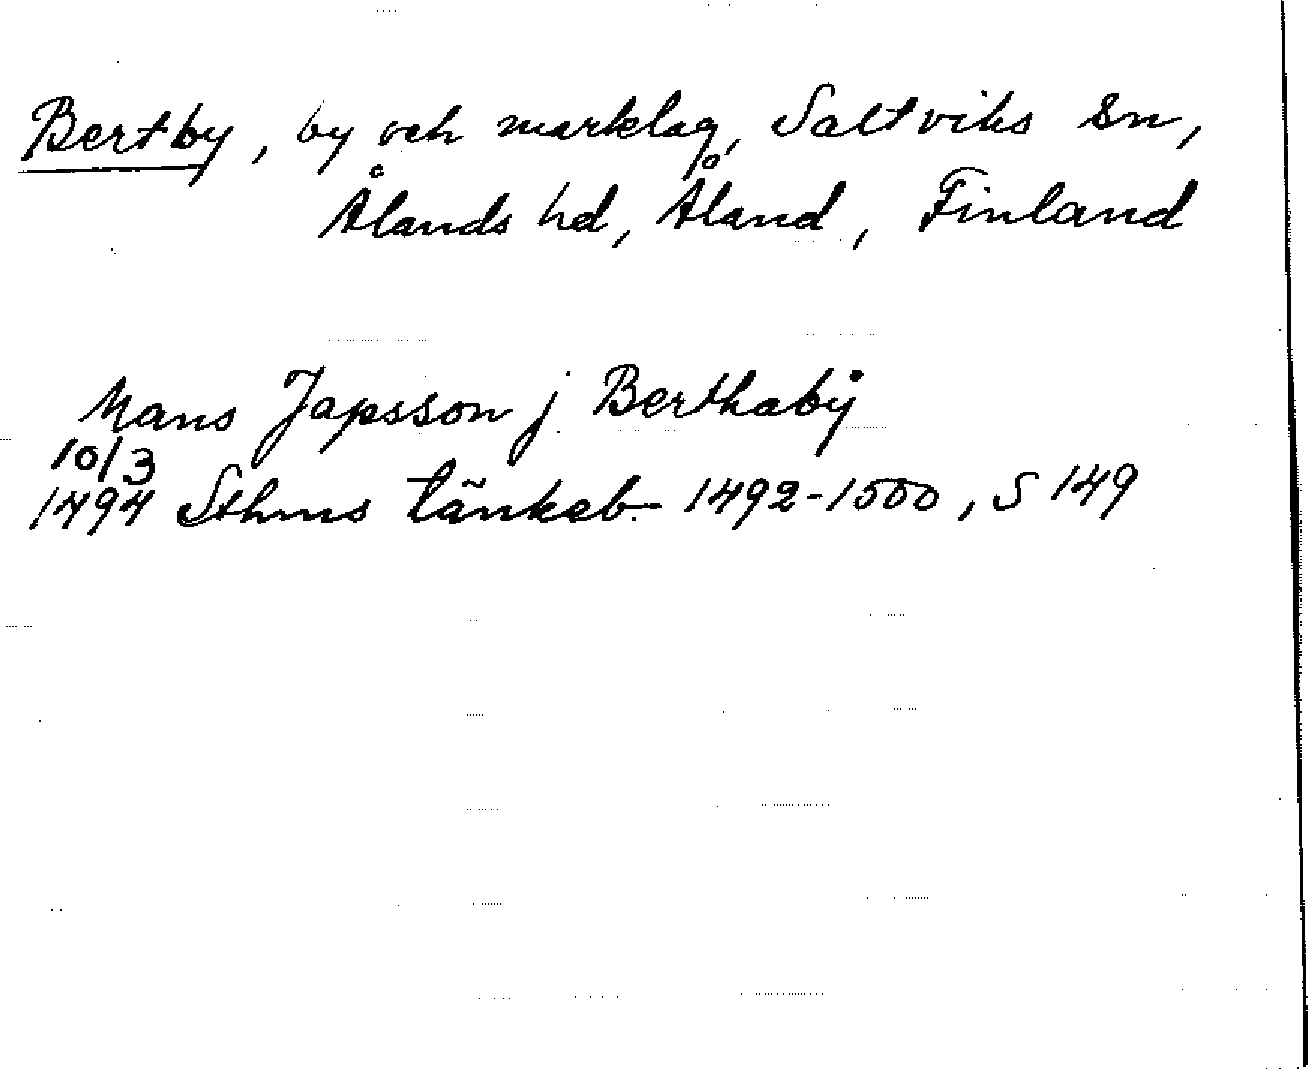 Bertby, by och marklag, Saltviks Sn,
Ålands hd, Åland, Finland
Mans Japsson j Berthabÿ
10/3
1494 Sthms tänkeb. 1492-1500, S 149